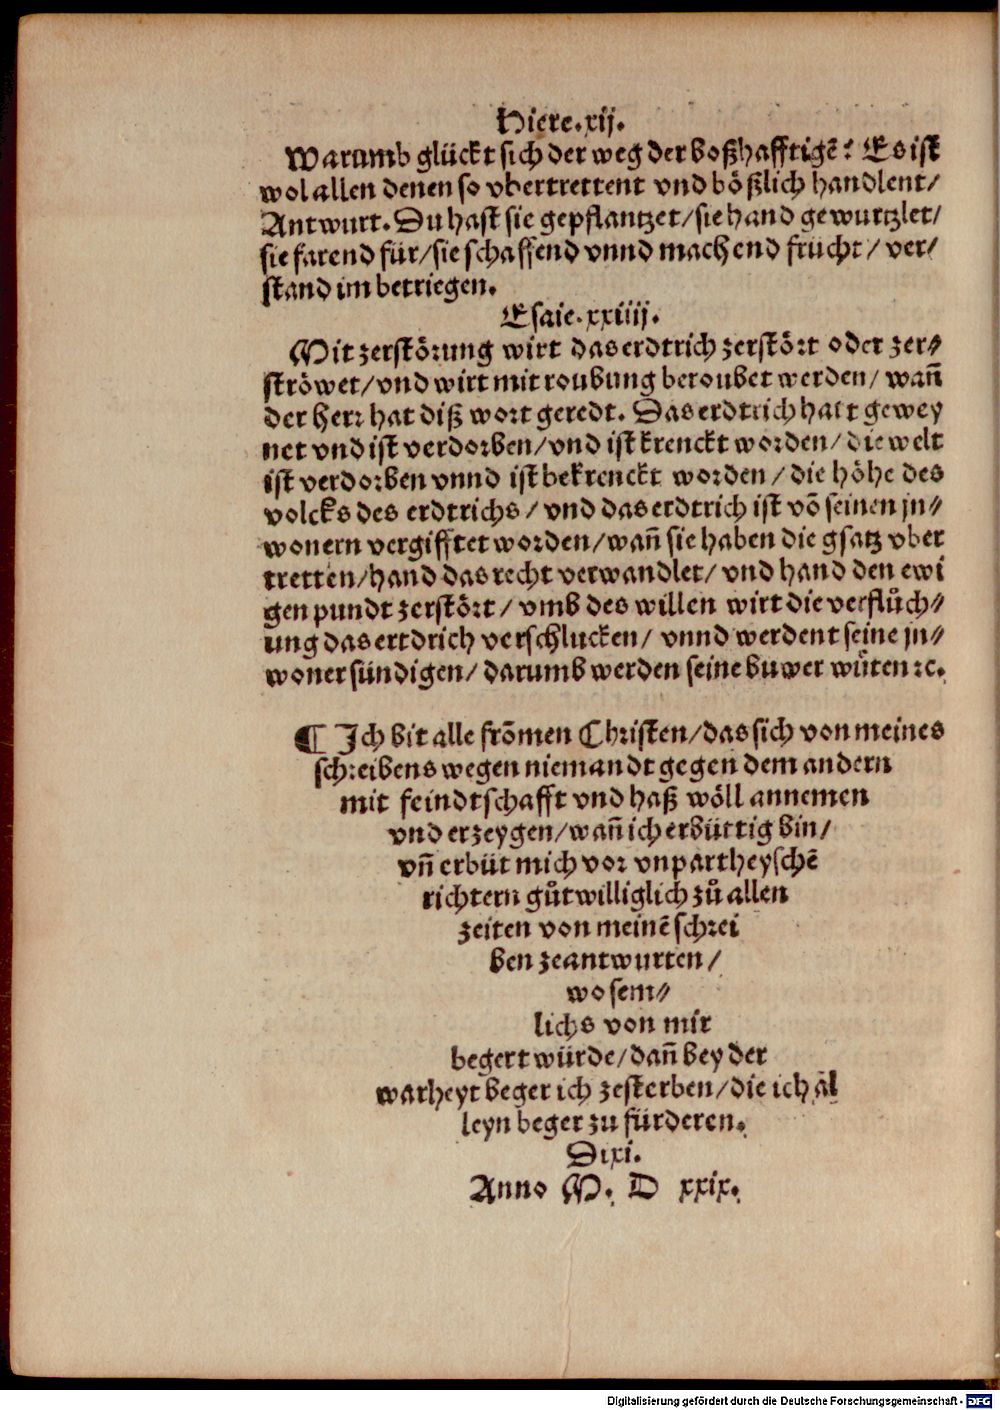 Hiere.xij.
Warumb glückt sich der weg der boßhafftigē? Es ist
wol allen denen so vbertrettent vnd bößlich handlent/
Antwurt. Du hast sie gepflantzet/sie hand gewurtzlet/
sie farend für/sie schaffend vnnd machend frücht/ ver⸗
stand im betriegen.
Esaie.xxiiij.
Mit zerstörung wirt das erdtrich zerstört oder zer⸗
ströwet/vnd wirt mit roubung beroubet werden/ wañ
der herr hat diß wort geredt. Das erdtrich hatt gewey
net vnd ist verdorben/vnd ist krenckt worden/ die welt
ist verdorben vnnd ist bekrenckt worden/ die höhe des
volcks des erdtrichs/ vnd das erdtrich ist vō seinen jn⸗
wonern vergifftet worden/wañ sie haben die gsatz vber
tretten/hand das recht verwandlet/ vnd hand den ewi
gen pundt zerstört/ vmb des willen wirt die verflůch⸗
ung das ertdrich verschlucken/ vnnd werdent seine jn⸗
woner sündigen/ darumb werden seine buwer wüten ꝛc.
¶ Ich bit alle frōmen Christen/das sich von meines
schreibens wegen niemandt gegen dem andern
mit feindtschafft vnd haß wöll annemen
vnd erzeygen/wañ ich erbüttig bin/
vñ erbüt mich vor vnpartheyschē
richtern gůtwilliglich zů allen
zeiten von meinē schrei
ben zeantwurten/
wo sem⸗
lichs von mir
begert würde/dañ bey der
warheyt beger ich zesterben/die ich al
leyn beger zu fürderen.
Dixi.
Anno M. D xxix.
Digitalisierung gefördert durch die Deutsche Forschungsgemeinschaft - DFG